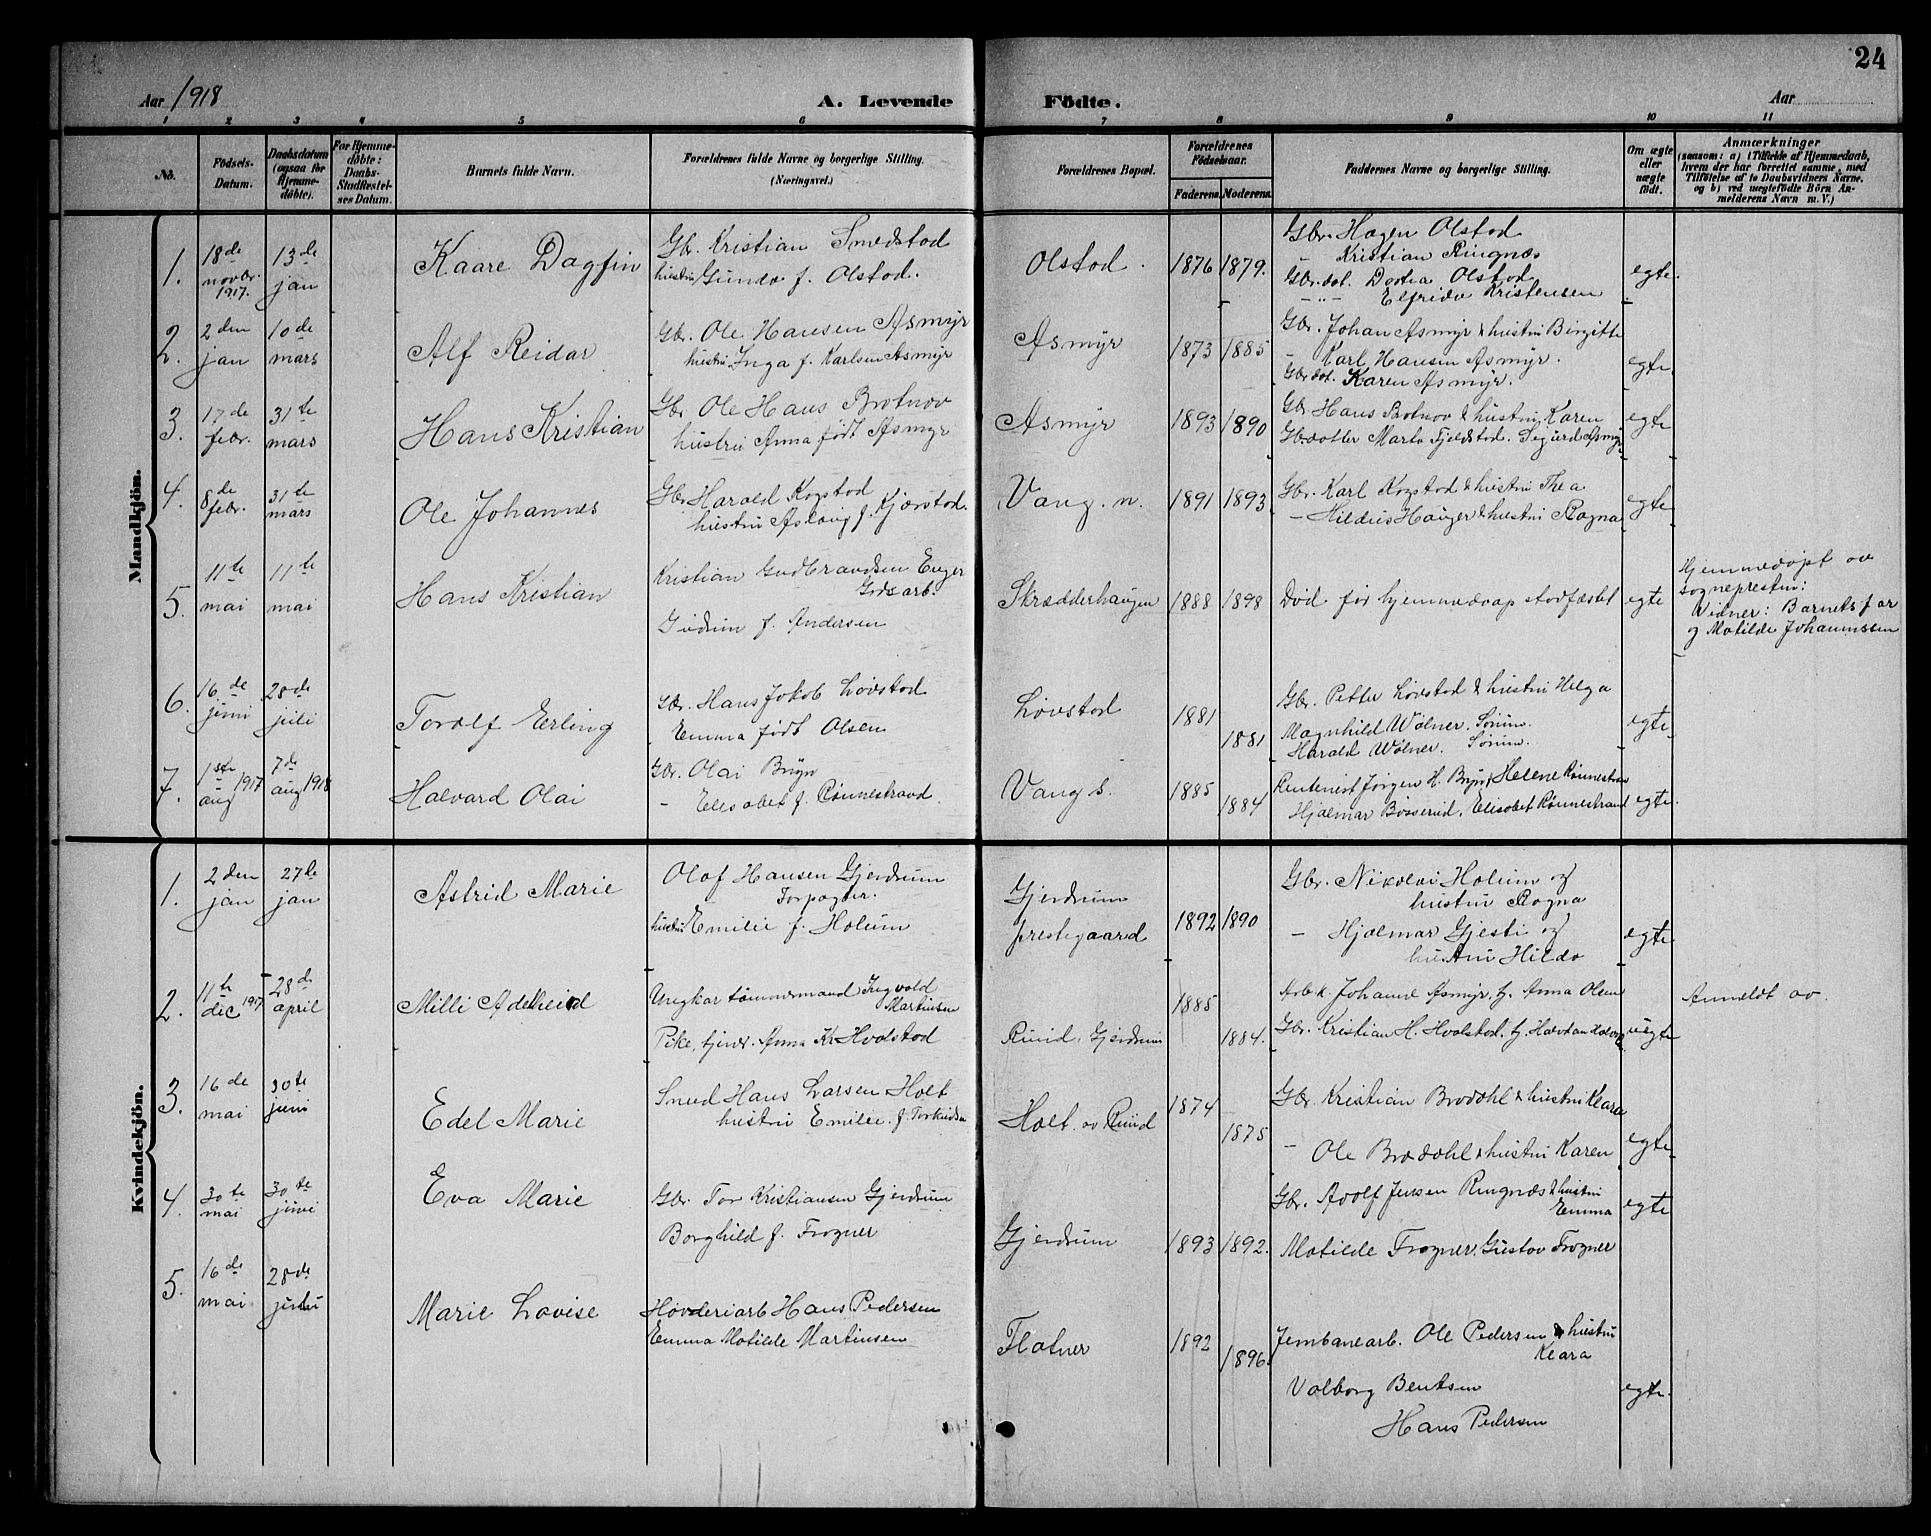 24
Aar 1918
A. Levende
Födte.
Aar
1 2 3 4 5 6 7 8 9 10 11
No.
Födsels-
Datum.
Daabsdatum
(ogsaa for
Hjemme-
döbte).
For Hjemme-
döbte:
Daabs-
Stadfæstel-
ses Datum.
Barnets fulde Navn.
Forældrenes fulde Navne og borgerlige Stilling.
(Næringsvei.)
Forældrenes Bopæl.
Forældrenes
Födselsaar.
Faderens. Moderens.
Faddernes Navne og borgerlige Stilling.
Om ægte
eller
uægte
födt.
Anmærkninger
(saasom: a) i Tilfælde af Hjemmedaab,
hvem der har forrettet samme, med
Tilföielse af to Daabsvidners Navne,
og b) ved uægtefödte Börn An-
melderens Navn m. V.)
Mandkjön.
1. 18de novbr. 1917. 13de jan
Kaare Dagfin
Gbr. Kristian Smedstad
hustru Gunda f. Olstad.
Olstad. 1876 1879.
Gbr. Hagen Olstad
- Kristian Ringnæs
Gbr.dat. Dortea Olstad
-"- Elfrida Kristensen
egte.
2. 2den jan 10de mars
Alf Reidar
Gbr. Ole Hansen Asmyr
hustru Inga f. Karlsen Asmyr
Asmyr 1873 1885
Gbr. Johan Asmyr & hustru Birgitte
- Karl Hansen Asmyr.
Gbr.dat. Karen Asmyr.
egte.
3. 17de febr. 31te mars
Hans Kristian
Gbr. Ole Hans Brotnov
hustru Anna født Asmyr
Asmyr 1893 1890
Gbr. Hans Brotnov & hustru Karen
Gbrdatter Marta Fjeldstad. Sigurd Asmyr
egte
4. 8de febr. 31te mars
Ole Johannes
Gbr. Harald Kogstad
hustru Aslaug f. Kjærstad.
Vang. n. 1891 1893
Gbr. Karl Kogstad & hustru Thea
- Hildus Hauger & hustru Ragna
egte
5. 11te mai 11te mai
Hans Kristian
Kristian Gudbrandsen Enger
Grdsarb.
Gudrun f. Andersen
Skrædderhaugen 1888 1898
Død før hjemmedaap stadfæstet
egte
Hjemmedøpt av
sogneprestin:
Vidner: Barnets far
og Matilde Johannssen
6. 16de juni 28de juli
Toralf Erling
Gbr. Hans Jakob Løvstad
Emma født Olsen
Løvstad 1881 1881
Gbr. Petter Løvstad & hustru Helga
Magnhild Wølner. Sørum.
Harald Wølner. Sørum.
egte.
7. 1ste aug 1917 7de aug 1918
Halvard Olai
Gbr. Olai Bryn
- Elisabet f. Rønnestrand.
Vang s. 1885 1884
Rentenist Jørgen H. Bryn, Helene Rønnestrand
Hjalmar Bøsserud, Elisabet Rønnestrand
egte.
Kvindekjön.
1. 2den jan 27te jan
Astrid Marie
Olaf Hansen Gjerdrum
Forpagter.
hustru Emilie f. Holum
Gjerdrum
prestegaard 1892 1890
Gbr. Nikolai Holum og
hustru Ragna
- Hjalmar Gjesti og
hustru Hilda
egte.
2. 11te dec 1917 28de april
Milli Adelheid
Ungkar tømmermand Ingvald
Martinsen
Pike, tjener. Anna Kr Hvalstad
Ruud, Gjerdrum 1885 1884.
Arbk. Johanne Asmyr, tj. Anna Olsen
Gbr. Kristian H. Hvalstad. tj. Halvdan
uegte
Anmeldt av.
3. 16de mai 30te juni
Edel Marie
Smed Hans Larsen Holt
hustru Emilie. f. Torkildsen
Holt. av Ruud 1874 1875
Gbr. Kristian Brodahl & hustru Klara
- Ole Brodahl & hustru Karen
egte.
4. 30te mai 30te juni
Eva Marie
Gbr Tor Kristiansen Gjerdrum
Borghild f. Frogner
Gjerdrum 1893 1892.
Gbr. Adolf Jensen Ringnæs & hustru
Emma
Matilde Frogner, Gustav Frogner
egte
5. 16de mai 28de juli
Marie Lovise
Havderiarb Hans Pedersen
Emma Matilde Martinsen
Flatner 1892 1896.
Jernbanearb. Ole Pedersen & hustru
Klara
Valborg Bentsen
Hans Pedersen
egte.